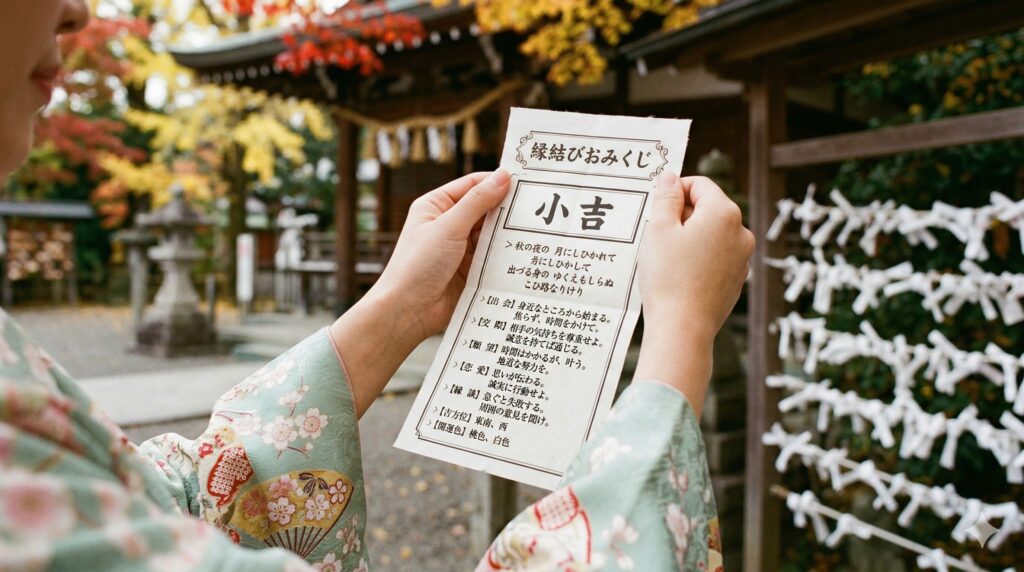 縁結びおみくじ
小吉
>秋の夜の 月にしひかれて
出づる身の ゆくえもしらぬ
こひ路なりけり
>【出 会】身近なところから始まる。
焦らず、時間をかけて。
>【交 際】相手の気持ちを尊重せよ。
誠意を持てば通じる。
>【願 望】時間はかかるが、叶う。
地道な努力を。
>【恋 愛】思いが伝わる。
誠実に行動せよ。
>【縁 談】急ぐと失敗する。
周囲の意見を聞け。
>【吉方位】東南、西
>【開運色】桃色、白色